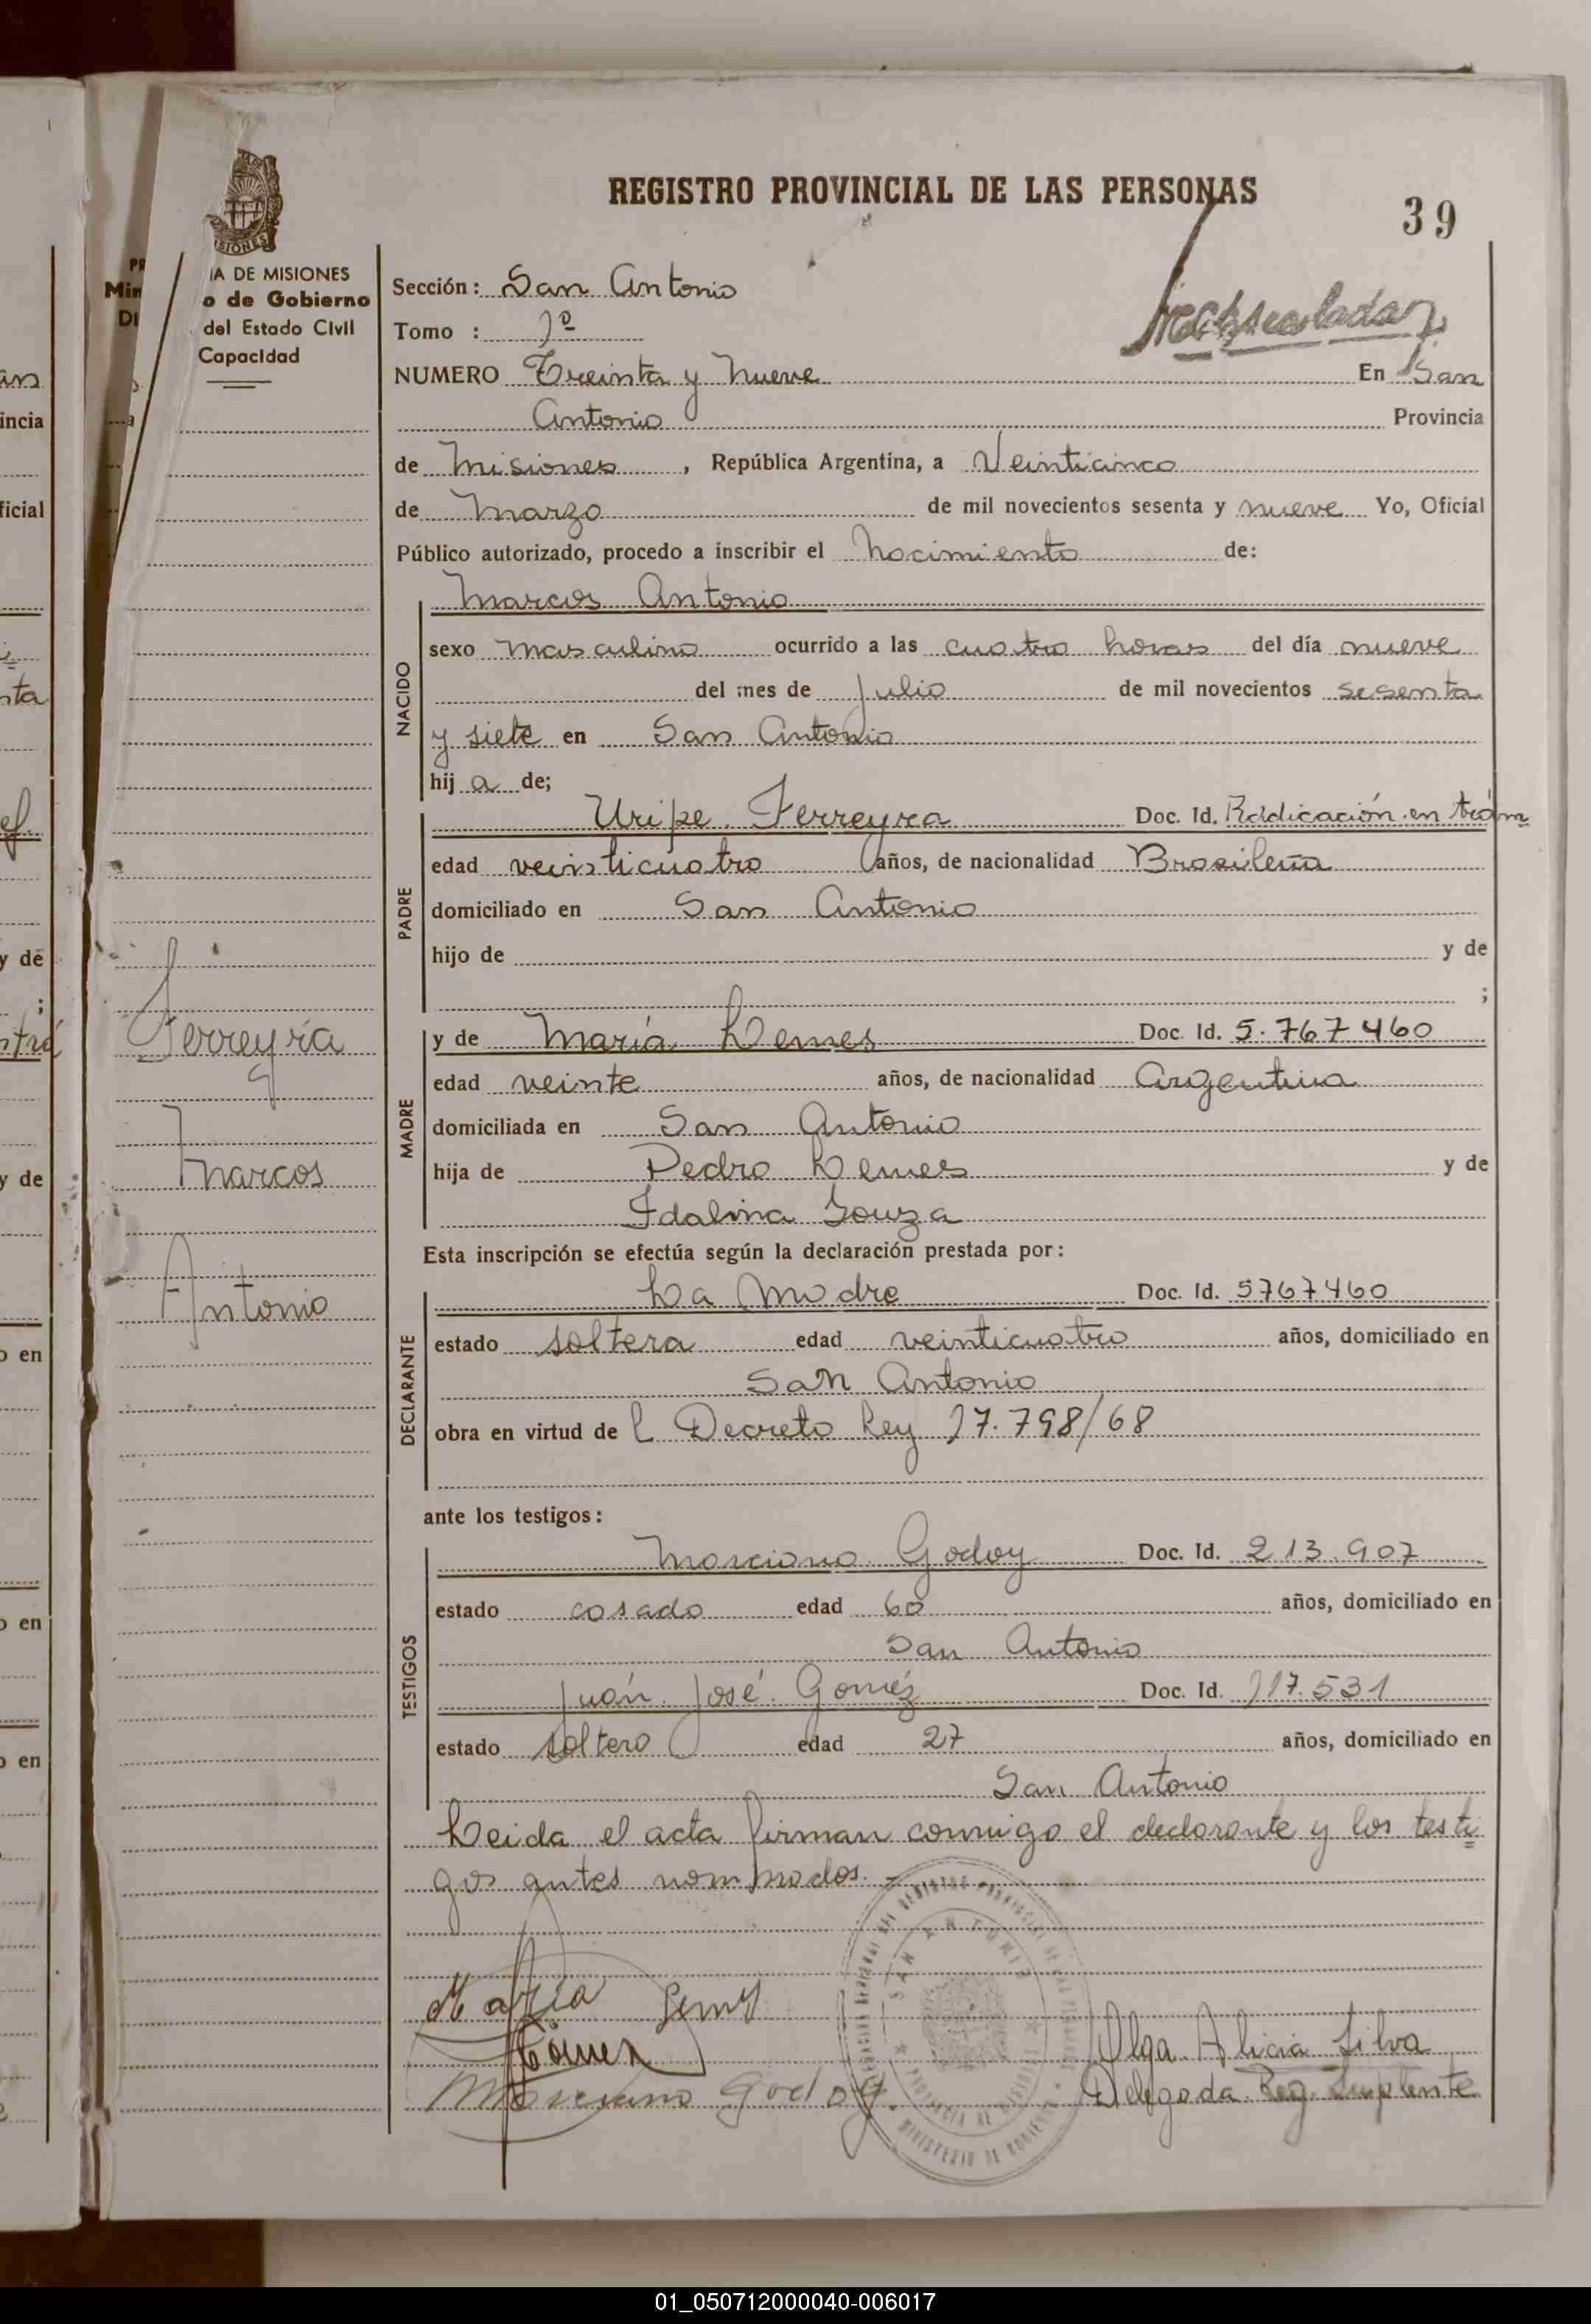 REGISTRO PROVINCIAL DE LAS PERSONAS
39
MISIONES
IA DE MISIONES
o de Gobierno
del Estado Civil
Capacidad
Sección: San Antonio
Tomo : 1º
NUMERO Treinta y nueve En San
Antonio Provincia
de Misiones, República Argentina, a Veinticinco
de Marzo de mil novecientos sesenta y nueve Yo, Oficial
Público autorizado, procedo a inscribir el Nacimiento de:
Marcos Antonio
NACIDO
sexo masculino ocurrido a las cuatro horas del día nueve
del mes de Julio de mil novecientos sesenta
y siete en San Antonio
hij a de;
PADRE
Uripe Ferreyra Doc. Id. Raddicación en trám
edad veinticuatro años, de nacionalidad Brasileña
domiciliado en San Antonio
hijo de y de
;
MADRE
y de María Lemes Doc. Id. 5.767460
edad veinte años, de nacionalidad Argentina
domiciliada en San Antonio
hija de Pedro Lemes y de
Idalina Souza
Ferreyra
Marcos
Antonio
Esta inscripción se efectúa según la declaración prestada por:
DECLARANTE
La Madre Doc. Id. 5767460
estado soltera edad veinticuatro años, domiciliado en
San Antonio
obra en virtud de l Decreto Ley 17.798/68
ante los testigos:
TESTIGOS
Marciano Godoy Doc. Id. 213.907
estado casado edad 60 años, domiciliado en
San Antonio
Juán José Goméz Doc. Id. 117.531
estado soltero edad 27 años, domiciliado en
San Antonio
Leida el acta firman conmigo el declarante y los testi
gos antes nombrados.-
María Lemes
Gomez
Marciano Godoy.
SAN ANTONIO
Olga Alicia Silva
Delegada Reg. Suplente
01_050712000040-006017